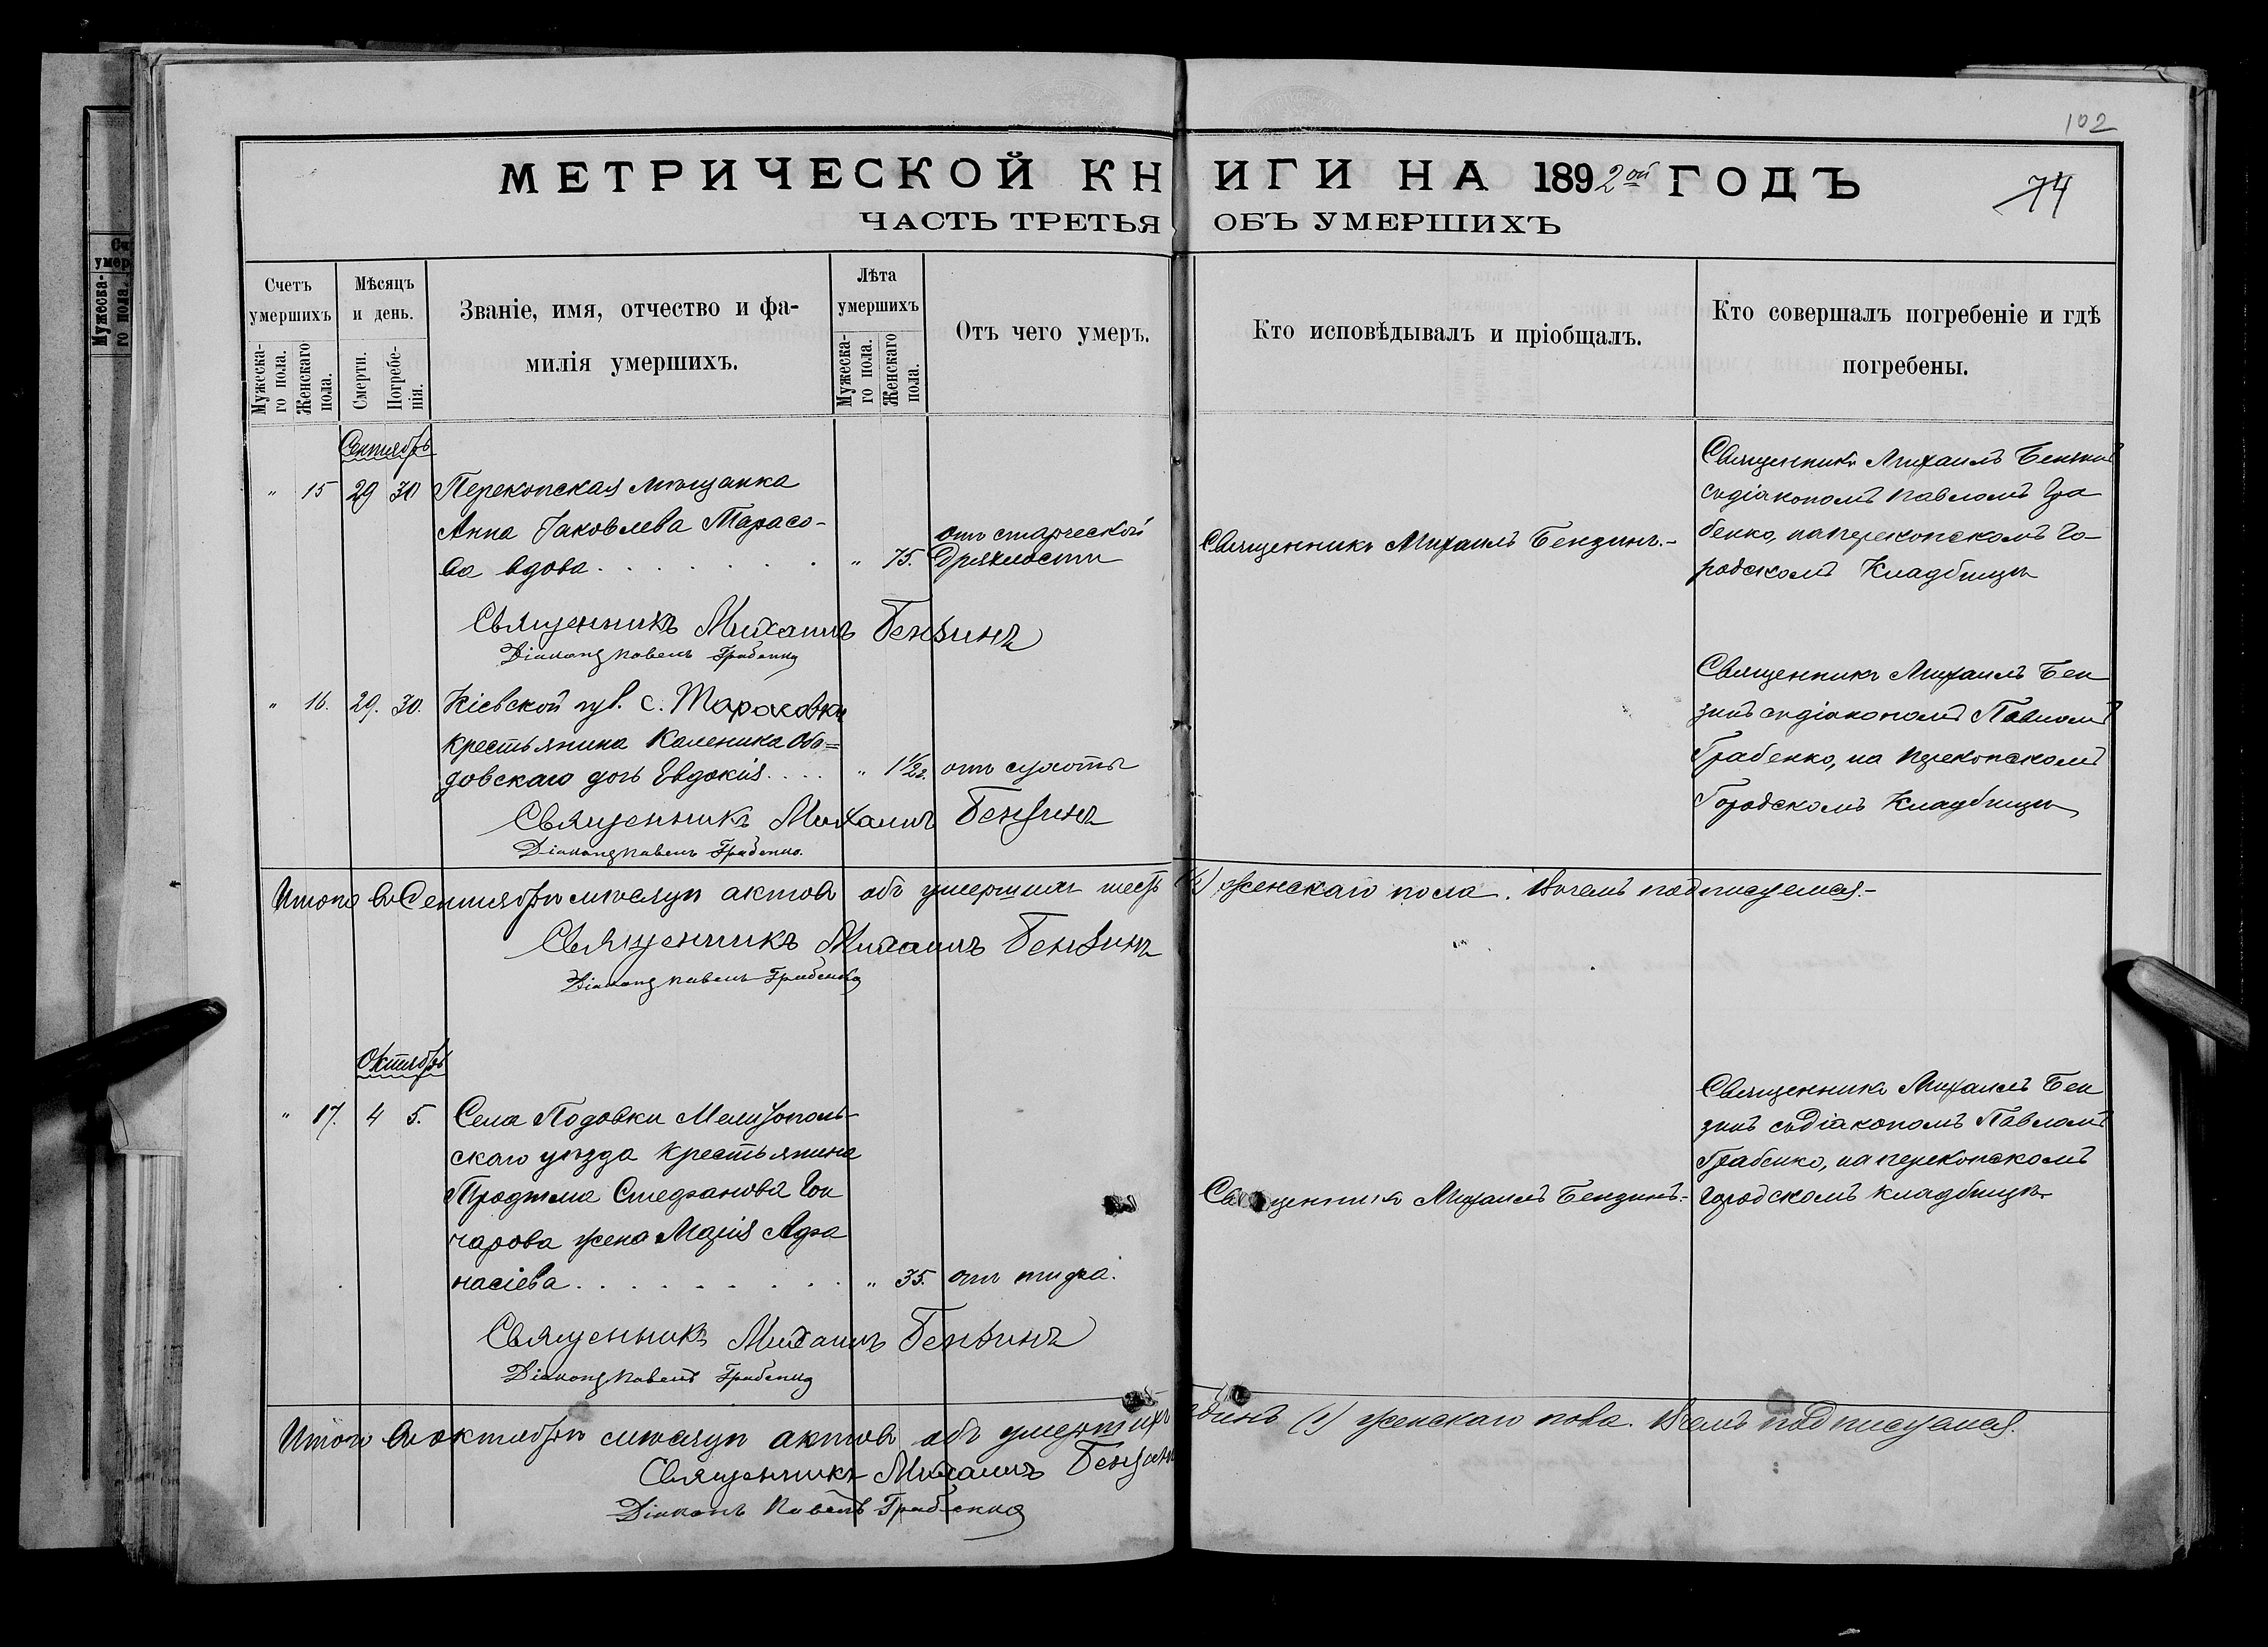 102
МЕТРИЧЕСКОЙ КНИГИ НА 1892ой ГОДЪ
74
ЧАСТЬ ТРЕТЬЯ ОБЪ УМЕРШИХЪ
Счетъ умершихъ
Мужеска-го пола.
Женскаго пола.
Мѣсяцъ и день.
Смерти.
Погребе-нія.
Званіе, имя, отчество и фа-
милія умершихъ.
Лѣта умершихъ
Мужеска-го пола.
Женскаго пола.
Отъ чего умеръ.
Кто исповѣдывалъ и пріобщалъ.
Кто совершалъ погребеніе и гдѣ
погребены.
Сентябрь
" 15 29 30 Перекопская мѣщанка
Анна Іаковлева Тарасо-
ва вдова " 75.
отъ старческой
дряхлости
Священникъ Михаилъ Бензинъ.-
Священникъ Михаилъ Бензинъ
съ діакономъ Павломъ Гра
бенко, на перекопскомъ го-
родскомъ Кладбищѣ
Священникъ Михаилъ Бензинъ
Діаконъ Павелъ Грабенко
" 16. 29. 30. Кіевской губ. с.
крестьянина Каленика Обо=
довскаго дочь Евдокія " 1½ отъ сухоты
Священникъ Михаилъ Бен
зинъ съ діакономъ Павломъ
Грабенко, на перекопскомъ
Городскомъ Кладбищѣ
Священникъ Михаилъ Бензинъ
Діаконъ Павелъ Грабенко.
Итого въ Сентябрѣ мѣсяцѣ актовъ объ умершихъ женскаго пола. Въ чемъ подписуемся.-
Священникъ Михаилъ Бензинъ
Діаконъ Павелъ Грабенко
Октябрь
" 17. 4 5. Села Подовки Мелитополь-
скаго уѣзда крестьянина
Стефанова Гон
чарова жена Марія Афа
насіева " 35. отъ тифа.
Священникъ Михаилъ Бензинъ.-
Священникъ Михаилъ Бен
зинъ съ діакономъ Павломъ
Грабенко, на перекопскомъ
городскомъ кладбищѣ
Священникъ Михаилъ Бензинъ
Діаконъ Павелъ Грабенко
Итого въ октябрѣ мѣсяцѣ актовъ объ умершихъ единъ (1) женскаго пола. Въ чемъ подписуемся.
Священникъ Михаилъ Бензинъ
Діаконъ Павелъ Грабенко